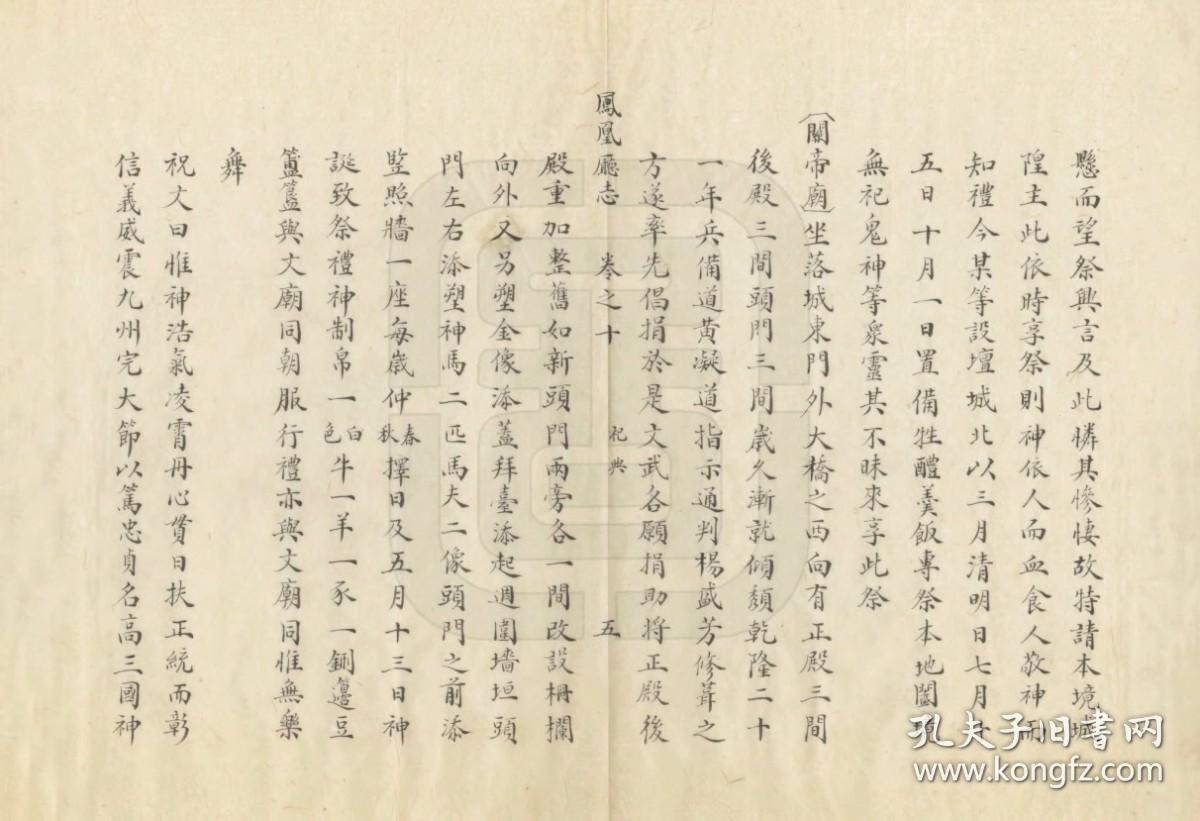 懸而望祭興言及此憐其慘悽故特請本境城
隍主此依時享祭則神依人而血食人敬神而
知禮今某等設壇城北以三月清明日七月十
五日十月一日置備牲醴羹飯專祭本地闔
無祀鬼神等衆靈其不昧來享此祭
關帝廟坐落城東門外大橋之西向有正殿三間
後殿三間頭門三間歲久漸就傾頹乾隆二十
一年兵備道黃凝道指示通判楊盛芳修葺之
方遂率先倡捐於是文武各願捐助將正殿後
鳳凰廳志 卷之十 祀典 五
殿重加整舊如新頭門兩旁各一間改設柵欄
向外又另塑金像添蓋拜臺添起週圍墻垣頭
門左右添塑神馬二匹馬夫二像頭門之前添
竪照牆一座每歲仲春秋擇日及五月十三日神
誕致祭禮神制帛一白色牛一羊一豕一鉶籩豆
簠簋與文廟同朝服行禮亦與文廟同惟無樂
舞
祝文曰惟神浩氣凌霄丹心貫日扶正統而彰
信義威震九州完大節以篤忠貞名高三國神
孔夫子旧书网
www.kongfz.com